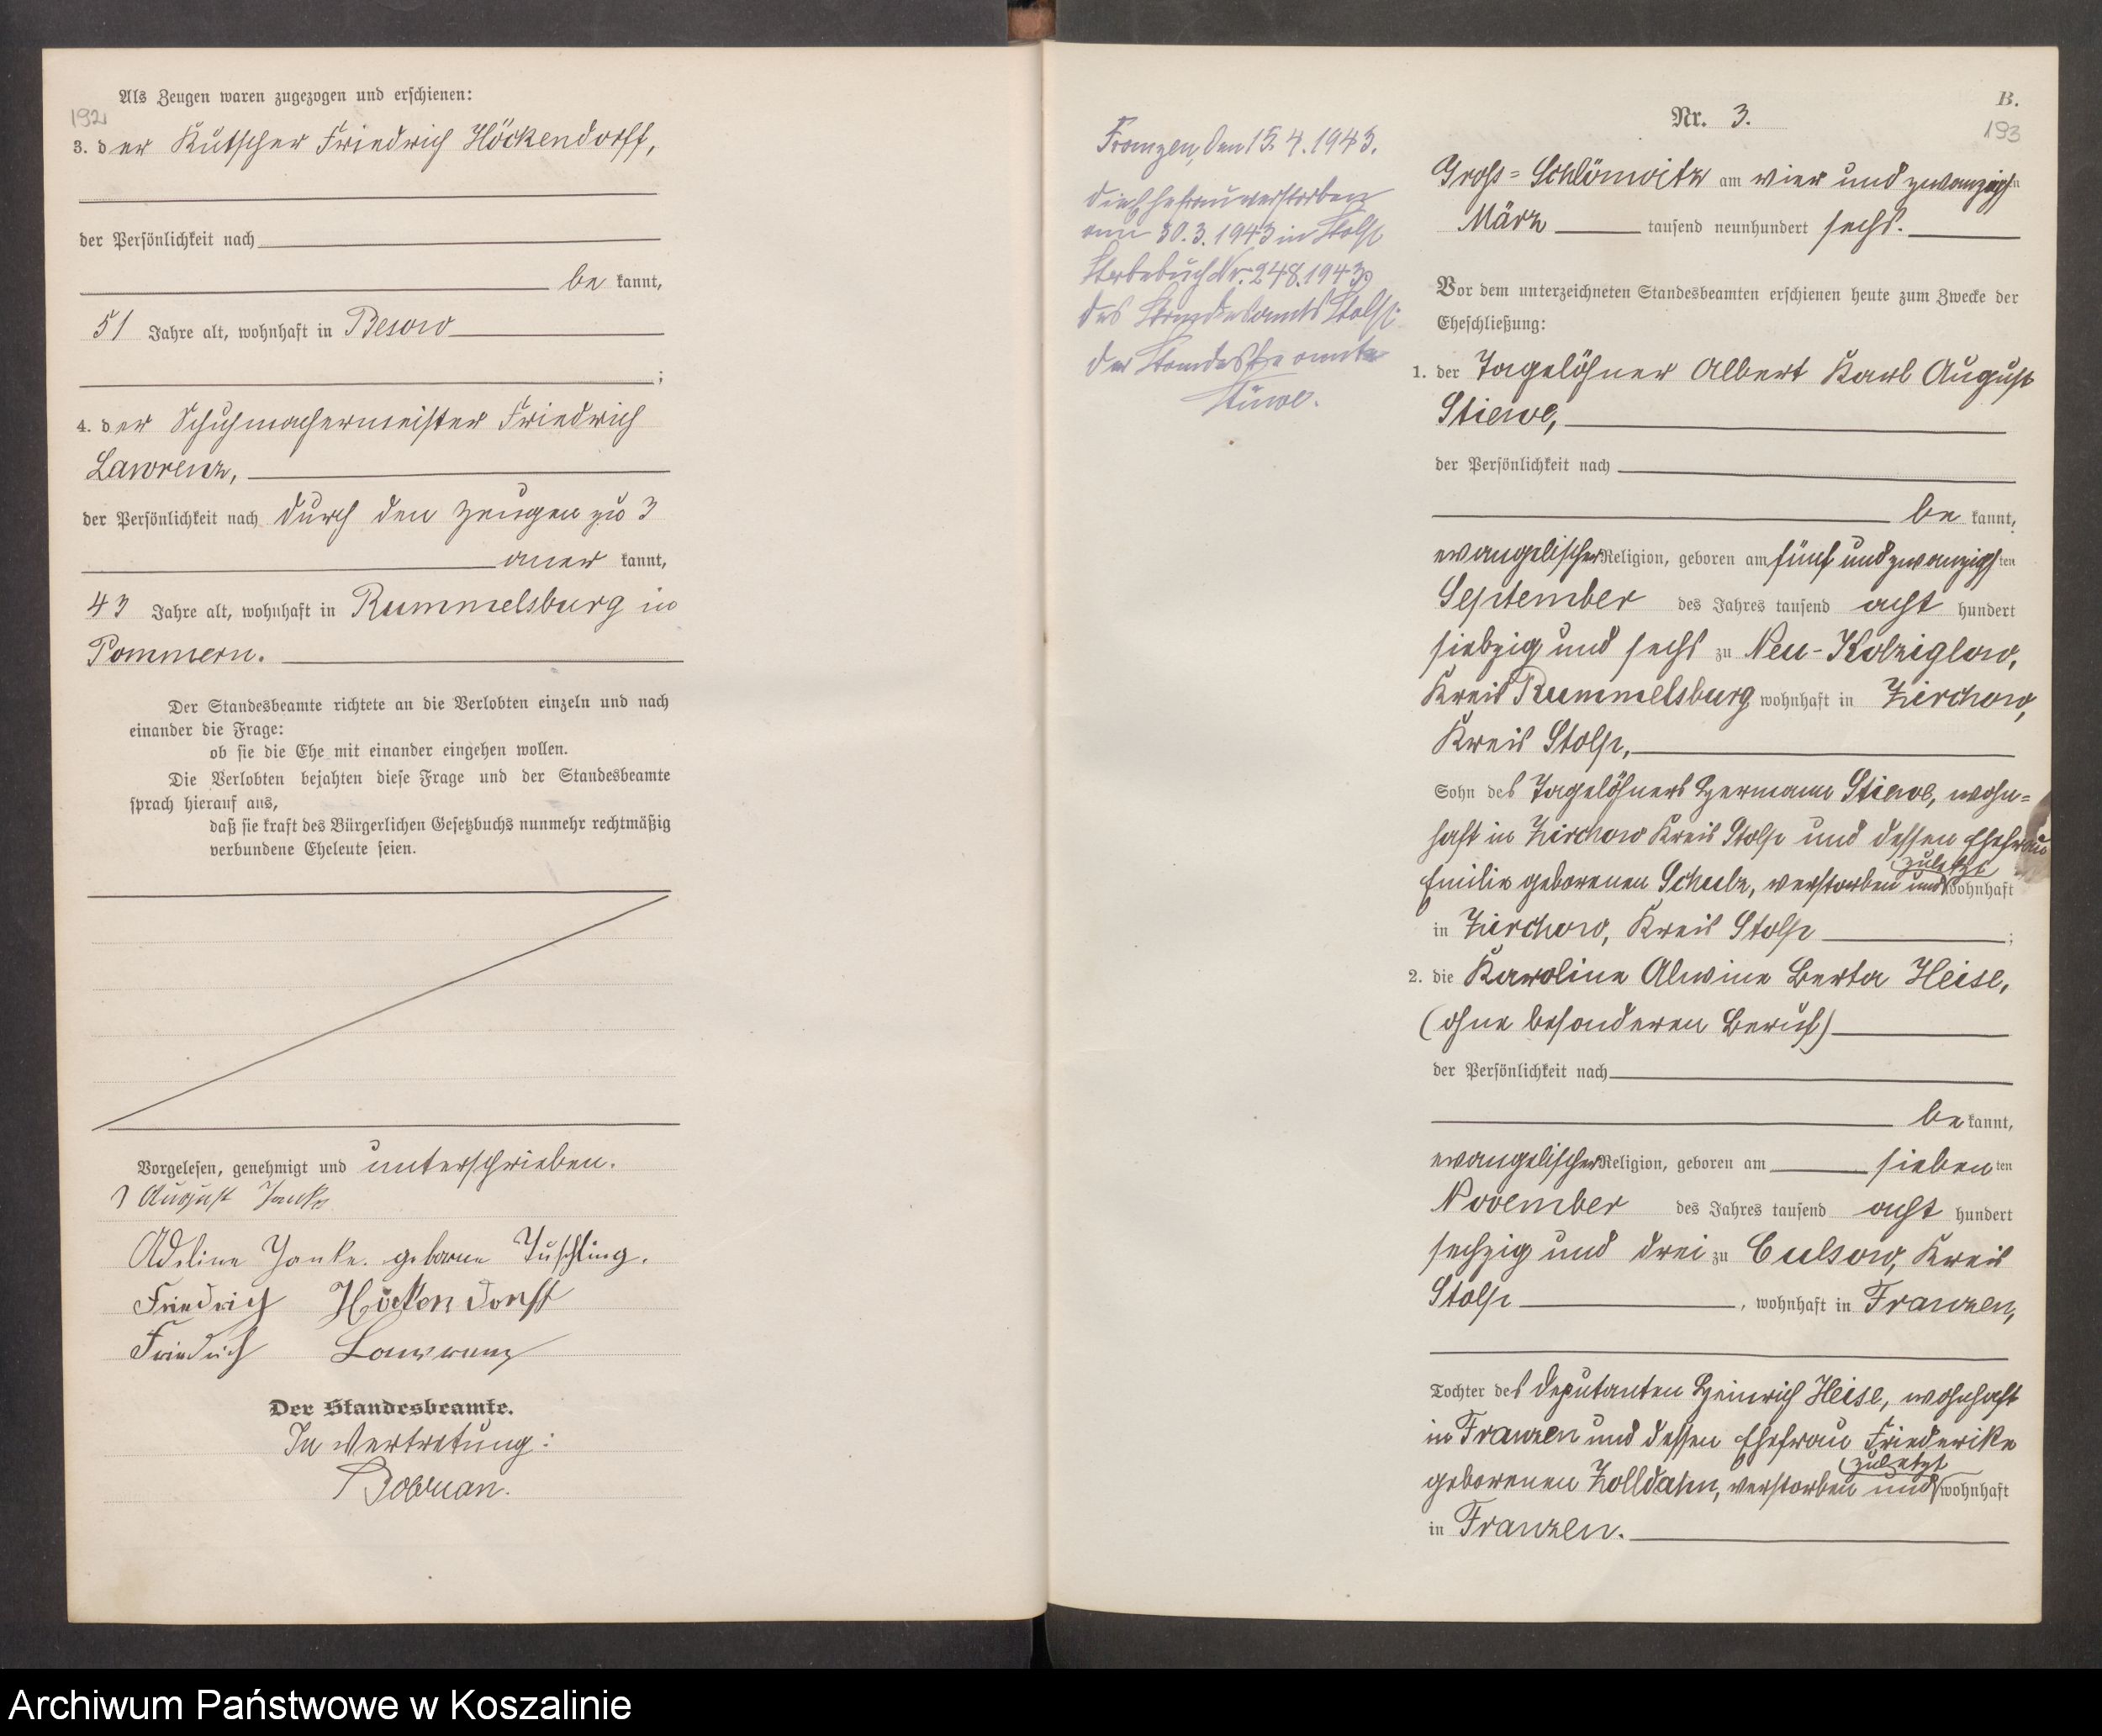 Als Zeugen waren zugezogen und erschienen:
192
3. der Kutscher Friedrich Höckendorff,
der Persönlichkeit nach
be kannt,
51 Jahre alt, wohnhaft in Besow
;
4. der Schuhmachermeister Friedrich
Lawrenz,
der Persönlichkeit nach durch den Zeugen zu 3
aner kannt,
43 Jahre alt, wohnhaft in Rummelsburg in
Pommern.
Der Standesbeamte richtete an die Verlobten einzeln und nach
einander die Frage:
ob sie die Ehe mit einander eingehen wollen.
Die Verlobten bejahten diese Frage und der Standesbeamte
sprach hierauf aus,
daß sie kraft des Bürgerlichen Gesetzbuchs nunmehr rechtmäßig
verbundene Eheleute seien.
Vorgelesen, genehmigt und unterschrieben.
August Janke
Adeline Janke. geborne Tuschling.
Friedrich Höckendorff
Friedrich Lawrenz
Der Standesbeamte.
In Vertretung:
Franzen, den 15.4.1943.
die Ehefrau verstorben
am 30.3.1943 in Stolp
Sterbebuch Nr. 248.1943
des Standesamts Stolp.
Der Standesbeamte
Stüwe.
B.
Nr. 3.
193
Gross=Schlönwitz am vier und zwanzigsten
März tausend neunhundert sechs.
Vor dem unterzeichneten Standesbeamten erschienen heute zum Zwecke der
Eheschließung:
1. der Tagelöhner Albert Karl August
Stiewe,
der Persönlichkeit nach
be kannt,
evangelischer Religion, geboren am fünf und zwanzigsten
September des Jahres tausend acht hundert
siebzig und sechs zu Neu-Kolziglow,
Kreis Rummelsburg wohnhaft in Zirchow,
Kreis Stolp,
Sohn des Tagelöhners Hermann Stiewe, wohn=
haft in Zirchow Kreis Stolp und dessen Ehefrau
zuletzt
Emilie geborenen Schulz, verstorben und wohnhaft
in Zirchow, Kreis Stolp ;
2. die Karoline Alwine Berta Heise,
(ohne besonderen Beruf)
der Persönlichkeit nach
be kannt,
evangelischer Religion, geboren am siebenten
November des Jahres tausend acht hundert
sechzig und drei zu Culsow, Kreis
Stolp, wohnhaft in Franzen,
Tochter des Deputanten Heinrich Heise, wohnhaft
in Franzen und dessen Ehefrau Friederike
zuletzt
geborenen Zolldahn, verstorben und wohnhaft
in Franzen.
Archiwum Państwowe w Koszalinie